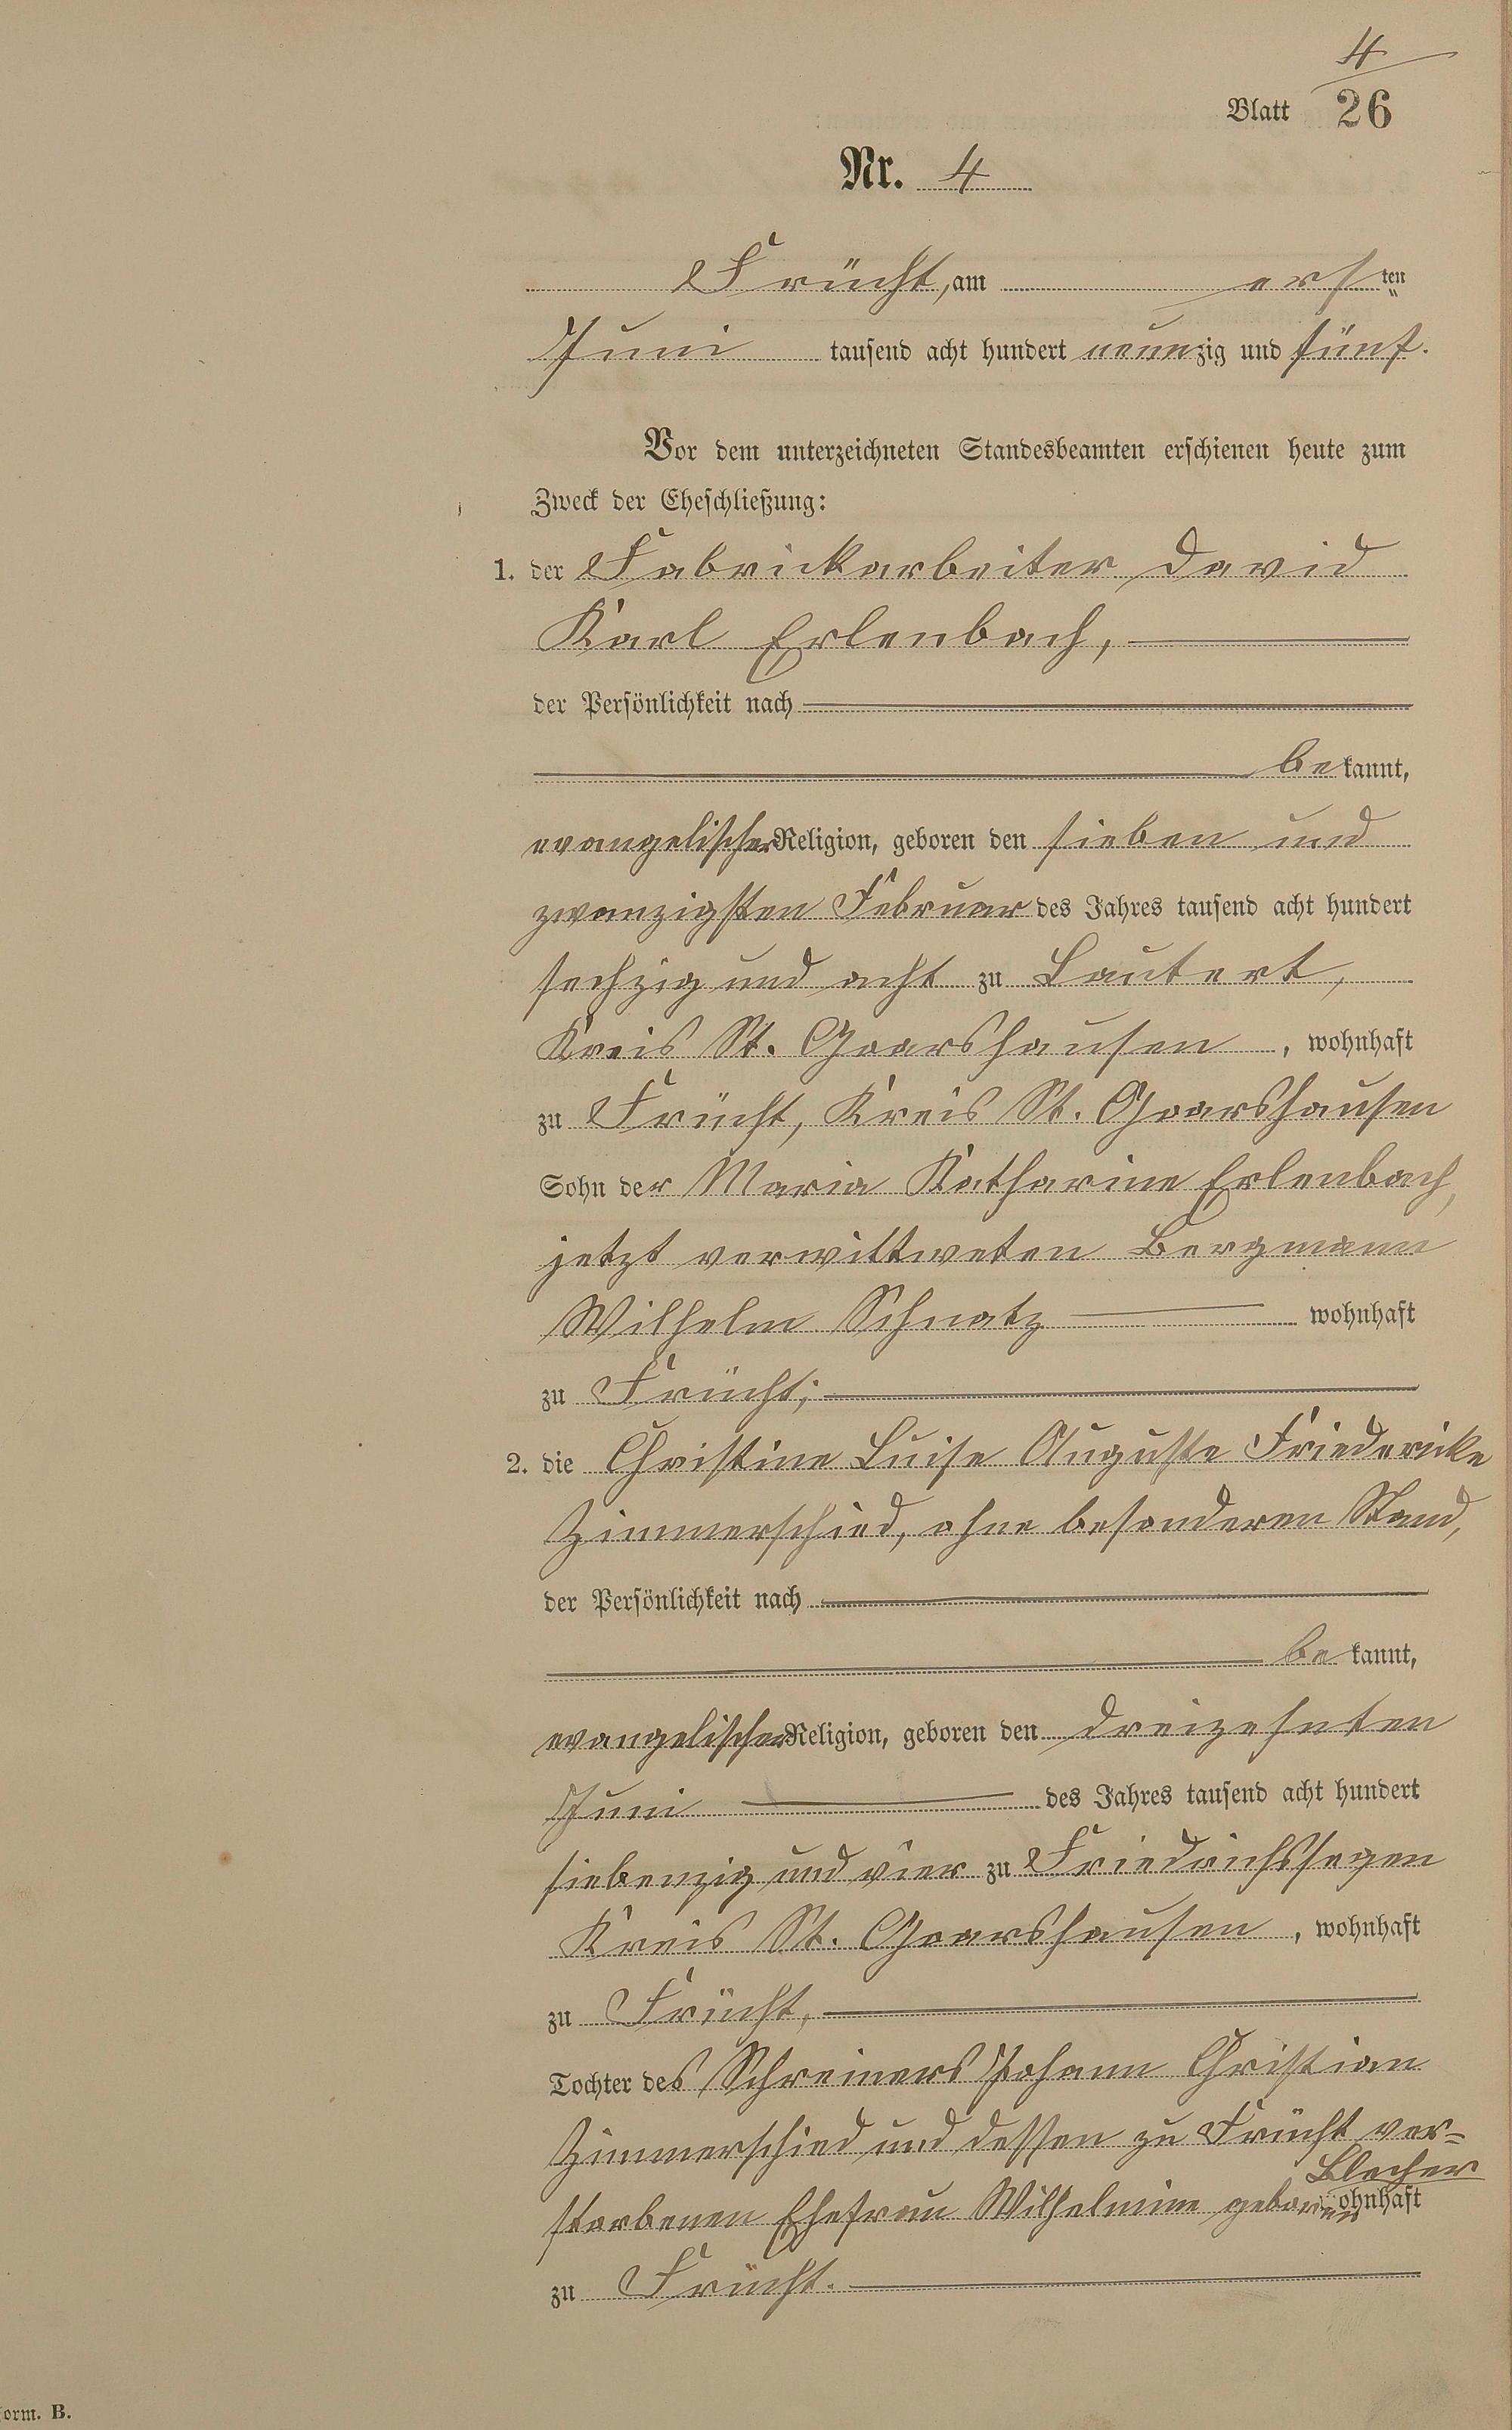 4
Blatt 26
Nr. 4
Frücht, am ersten
Juni tausend acht hundert neunzig und fünf.
Vor dem unterzeichneten Standesbeamten erschienen heute zum
Zweck der Eheschließung:
1. der Fabrickarbeiter David
Karl Erlenbach,
der Persönlichkeit nach
bekannt,
evangelischer Religion, geboren den sieben und
zwanzigsten Februar des Jahres tausend acht hundert
sechzig und acht zu Lautert,
Kreis St. Goarshausen, wohnhaft
zu Frücht, Kreis St. Goarshausen
Sohn der Maria Katharine Erlenbach,
jetzt verwittweten Bergmann
Wilhelm Schnatz wohnhaft
zu Frücht;
2. die Christine Luise Auguste Friedericke
Zimmerschied, ohne besonderen Stand,
der Persönlichkeit nach
bekannt,
evangelischer Religion, geboren den dreizehnten
Juni des Jahres tausend acht hundert
siebenzig und vier zu Friedrichssegen
Kreis St. Goarshausen, wohnhaft
zu Frücht,
Tochter des Schreiners Johann Christian
Zimmerschied und dessen zu Frücht ver=
Blecher
storbenen Ehefrau Wilhelmine geborenen wohnhaft
zu Frücht.
Form. B.